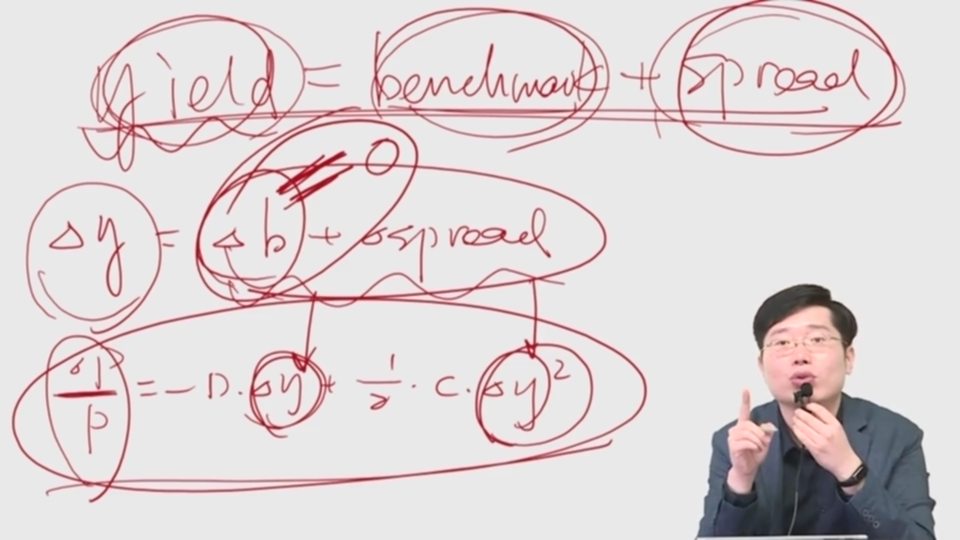 yield = benchmark + spread
Δy = Δb + Δspread
0
ΔP/P = -D·Δy + 1/2·C·Δy²